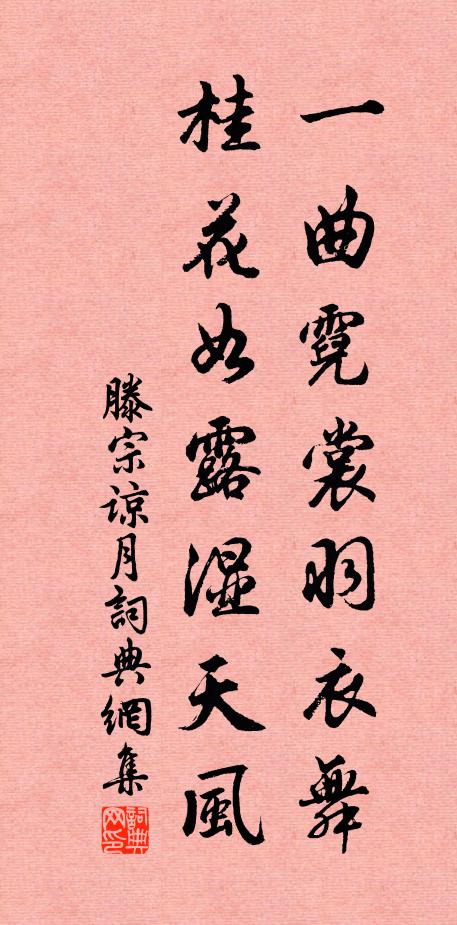 一曲霓裳羽衣舞
桂花如露濕天風
滕宗谅月詞典網集
詞典网印